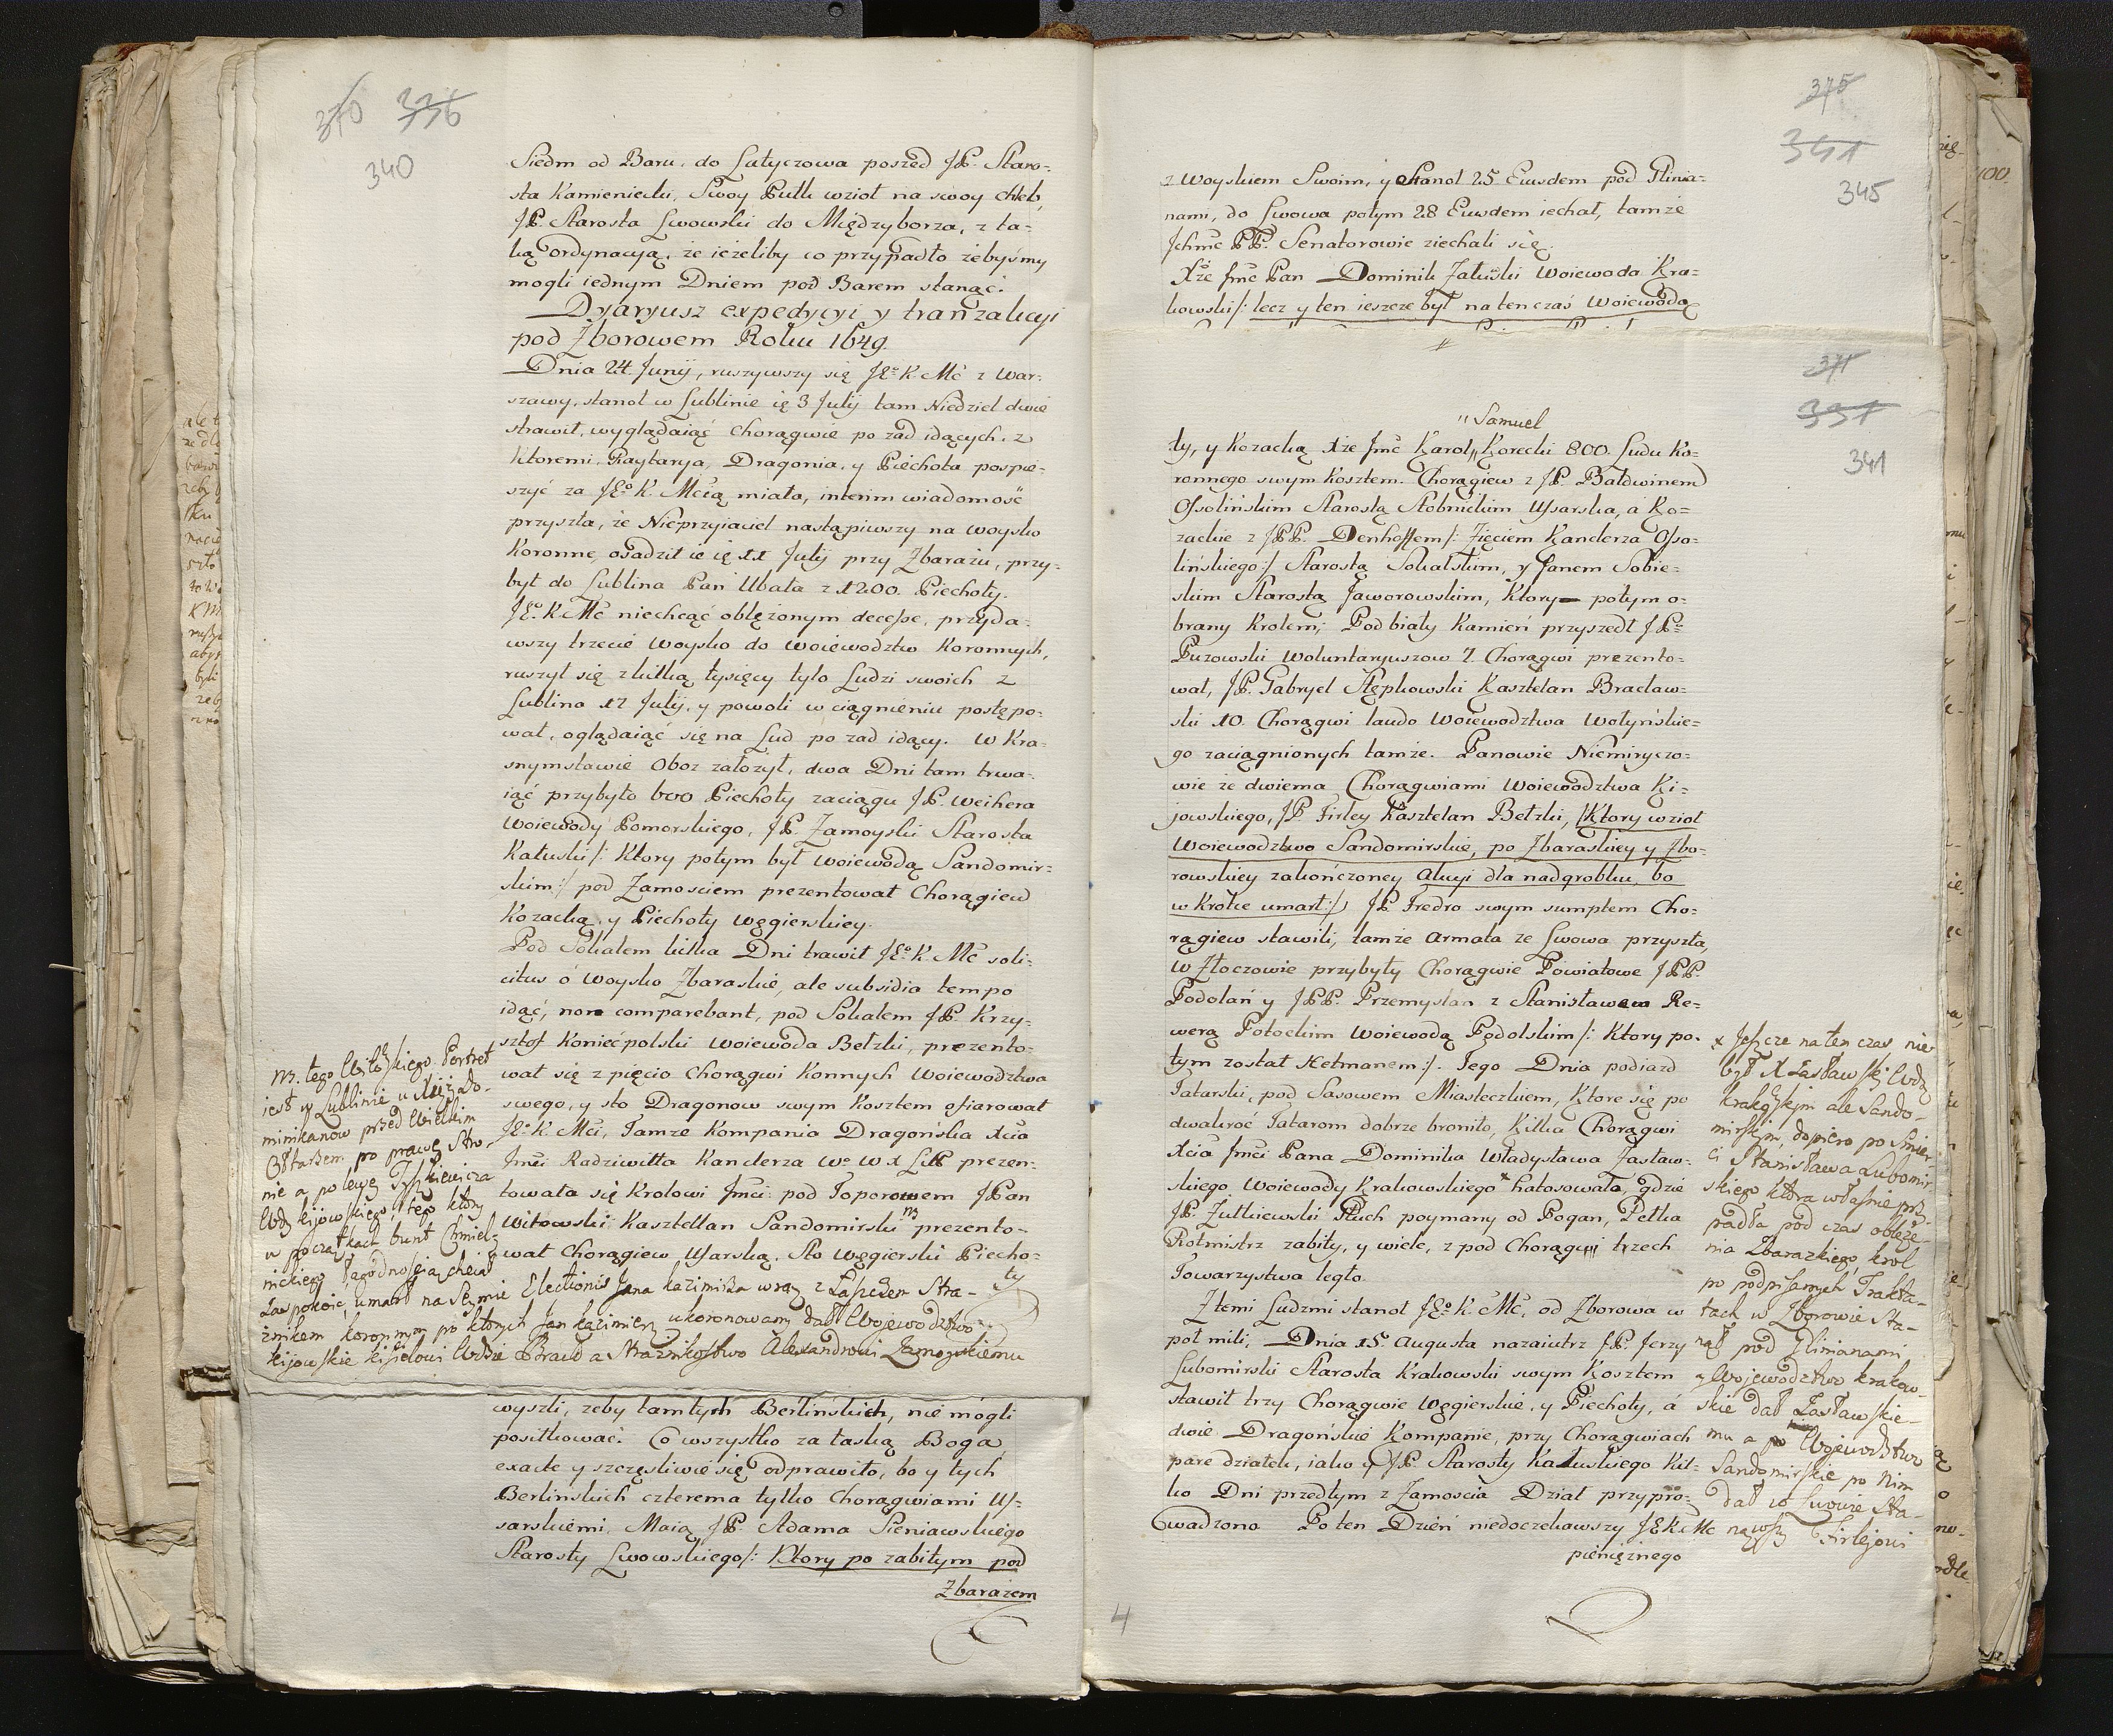 370 336
340
Siedm od Baru, do Latyczowa poszed JP. Staro-
sta Kamieniecki, Swoy Pułk wzioł na swoy chleb,
JP. Starosta Lwowski do Międzyborza, z ta-
ką ordynacyą, że ieżeliby co przypadło żebyśmy
mogli iednym Dniem pod Barem stanąć.
Dyaryusz expedycyi y tranzakcyi
pod Zborowem Roku 1649.
Dnia 24. Junij, ruszywszy się JEo K. Mć z War-
szawy, stanoł w Lublinie ię 3 Julij tam Niedziel dwie
strawił, wyglądaiąć Chorągwie po zad idących, z
ktoremi, Raytarya, Dragonia, y Piechota pospie-
szyć za JEo K. Mcią miała, interim wiadomość
przyszła, że Nieprzyiaciel nastąpiwszy na woysko
Koronne, osadził ie ię 11 Julij przy Zbarażu, przy-
był do Lublina Pan Ubata z 1200. Piechoty.
JEo K. Mć niechcąć oblężonym deesse, przyda-
wszy trzecie woysko do Woiewodztw Koronnych,
ruszył się z kilką tysięcy tylo Ludzi swoich z
Lublina 17 Julij, y powoli w ciągnieniu postępo-
wał, oglądaiąć się na Lud po zad idący. W Kra-
snymstawie Oboz założył, dwa Dni tam trwa-
iąć przybyło 600 Piechoty zaciągu JP. Weihera
Woiewody Pomorskiego, JP. Zamoyski Starosta
Kałuski/: Ktory potym był Woiewodą Sandomir-
skim:/ pod Zamościem prezentował Chorągiew
Kozacką, y Piechoty Węgierskiey.
Pod Sokalem kilka Dni trawił JEo K. Mć soli-
citus o Woysko Zbaraskie, ale subsidia tempo
idąć, non comparebant, pod Sokalem JP. Krzy-
sztof Koniecpolski Woiewoda Bełzki, prezento-
wał się z pięcio Chorągwi Konnych Woiewodztwa
swego, y sto Dragonow swym Kosztem ofiarował
JEo K. Mci, Tamże Kompania Dragońska Xcia
Jmci Radziwiłła Kanclerza Wo W X Litt prezen-
towała się Krolowi Jmci: pod Toporowem JPan
Witowski Kasztellan Sandomirski NB prezento-
wał Chorągiew Usarską. Sto Węgierski Piecho-
ty
NB. tego Witowskiego Portret
iest w Lublinie u Xięży Do-
minikanow przed Wielkim
Ołtarzem po prawey Stro-
nie a po lewey Tyszkiewicza
Wdy kijowskiego, tego ktory
w początkach bunt Chmiel-
nickiego łagodnością chciał
zaspokoić, umarł na Seymie Electionis Jana kazimirza wraz z Łaszczem Stra-
żnikem koronnym po ktorych Jan kazimierz ukoronowany dał Woiewodztwo
kijowskie kisielowi Wdzie Bracł a Strażnikostwo Alexandrowi Zamoyskiemu
wyszli, żeby tamtych Berlińskich, nie mógli
posiłkować. Co wszystko za łaską Boga
exacte y szczęśliwie się odprawiło, bo y tych
Berlinskich czterema tylko Chorągwiami Us-
sarskiemi, Maią JP. Adama Sieniawskiego
Starosty Lwowskiego/: Ktory po zabitym pod
Zbarażem
375
341
345
z Woyskiem Swoim, y Stanoł 25 Eiusdem pod Glinia-
nami, do Lwowa potym 28 Eiusdem iechał, tamże
Jchmć PP. Senatorowie ziechali się.
Xże Jmć Pan Dominik Zasławski Woiewoda Kra-
kowski/: lecz y ten ieszcze był na ten czaś Woiewodą
371
331
341
" Samuel
ty, y Kozacką Xże Jmć Karol " Korecki 800. Ludu Ko-
ronnego swym Kosztem. Chorągiew z JP. Bałdwinem
Ossolińskim Starostą Stobnickim Usarska, á Ko-
zackie z JPP. Denhoffem/: Zięciem Kanclerza Osso-
lińskiego:/ Starostą Sokalskim, y Janem Sobie-
skim Starostą Jaworowskim, Ktory potym o-
brany Krolem; Pod biały Kamień przyszedł JP.
Puzowski Woluntaryuszow 7. Chorągwi prezento-
wał, JP. Gabryel Stępkowski Kasztelan Bracław-
ski 10. Chorągwi laudo Woiewodztwa Wołyńskie-
go zaciągnionych tamże. Panowie Niemiryczo-
wie ze dwiema Chorągwiami Woiewodztwa Ki-
jowskiego, JP Firley Kasztelan Bełzki, /Ktory wzioł
Woiewodztwo Sandomirskie, po Zbaraskiey y Zbo-
rowskiey zakończoney Akcyi dla nadgrobku, bo
w Krotce umarł:/ JP. Fredro swym sumptem Cho-
rągiew stawili, tamże Armata ze Lwowa przyszła,
W Złoczowie przybyły Chorągwie Powiatowe JPP.
Podolań y JPP. Przemyslan z Stanisławem Re-
werą Potockim Woiewodą Podolskim/: Ktory po-
tym został Hetmanem:/. Tego Dnia podiazd
Tatarski, pod Sasowem Miasteczkiem, Ktore się po
dwakroć Tatarom dobrze broniło, Kilka Chorągwi
Xcia Jmci Pana Dominika Władysława Zasław-
skiego Woiewody Krakowskiego x hałosowała, gdzie
JP. Zułkiewski Słuch poymany od Pogan, Pełka
Rotmistrz zabity, y wiele, z pod Chorągwi trzech
Towarzystwa legło.
Z temi Ludzmi stanoł JEo K. Mć, od Zborowa w
poł mili; Dnia 15. Augusta nazaiutrz JP. Jerzy
Lubomirski Starosta Krakowski swym Kosztem
stawił trzy Chorągwie Węgierskie, y Piechoty, á
dwie Dragońskie Kompanie, przy Chorągwiach
pare działek, iako y JP. Starosty Kałuskiego Kil-
ko Dni przedtym z Zamościa Dział przypro-
wadzono Po ten Dzień niedoczekawszy JEK Mć
pieniężnego
x Jeszcze na ten czas nie
był X Zasławski Wdą
krakoskim ale Sando-
mirskim, dopiero po Smier-
ci Stanisława Lubomir-
skiego ktora własnie przy-
padła pod czas oblęże-
nia Zbarazkiego, krol
po podpisanych Trakta-
tach w Zborowie Sta-
nął pod Glinianami
y Wojewodztwo krakow-
skie dał Zasławskie-
mu a Wojewodztwo
Sandomirskie po Nim
dał w Lwowie Sta-
nąwszy Firlejowi
4